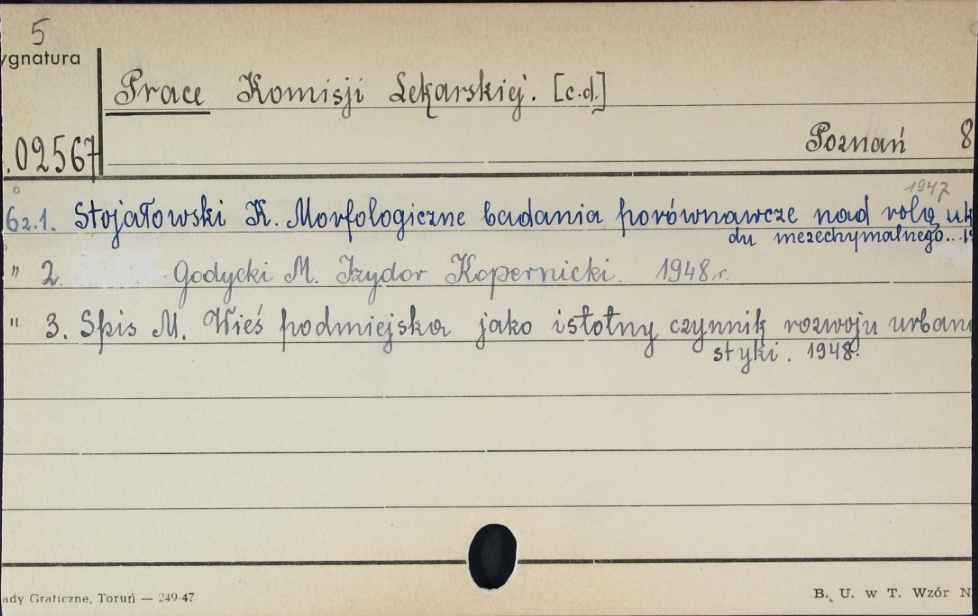 5
ygnatura
Prace Komisji Lekarskiej. [c.d.]
.02567
Poznań 8
1947
6 z. 1. Stojałowski K. Morfologiczne badania porównawcze nad rolą uk
du mezechymalnego.. 19
" 2 Godycki M. Izydor Kopernicki. 1948 r.
" 3. Spis M. Wieś podmiejska jako istotny czynnik rozwoju urbani
styki. 1948.
ady Graficzne, Toruń — 249-47
B. U. w T. Wzór N